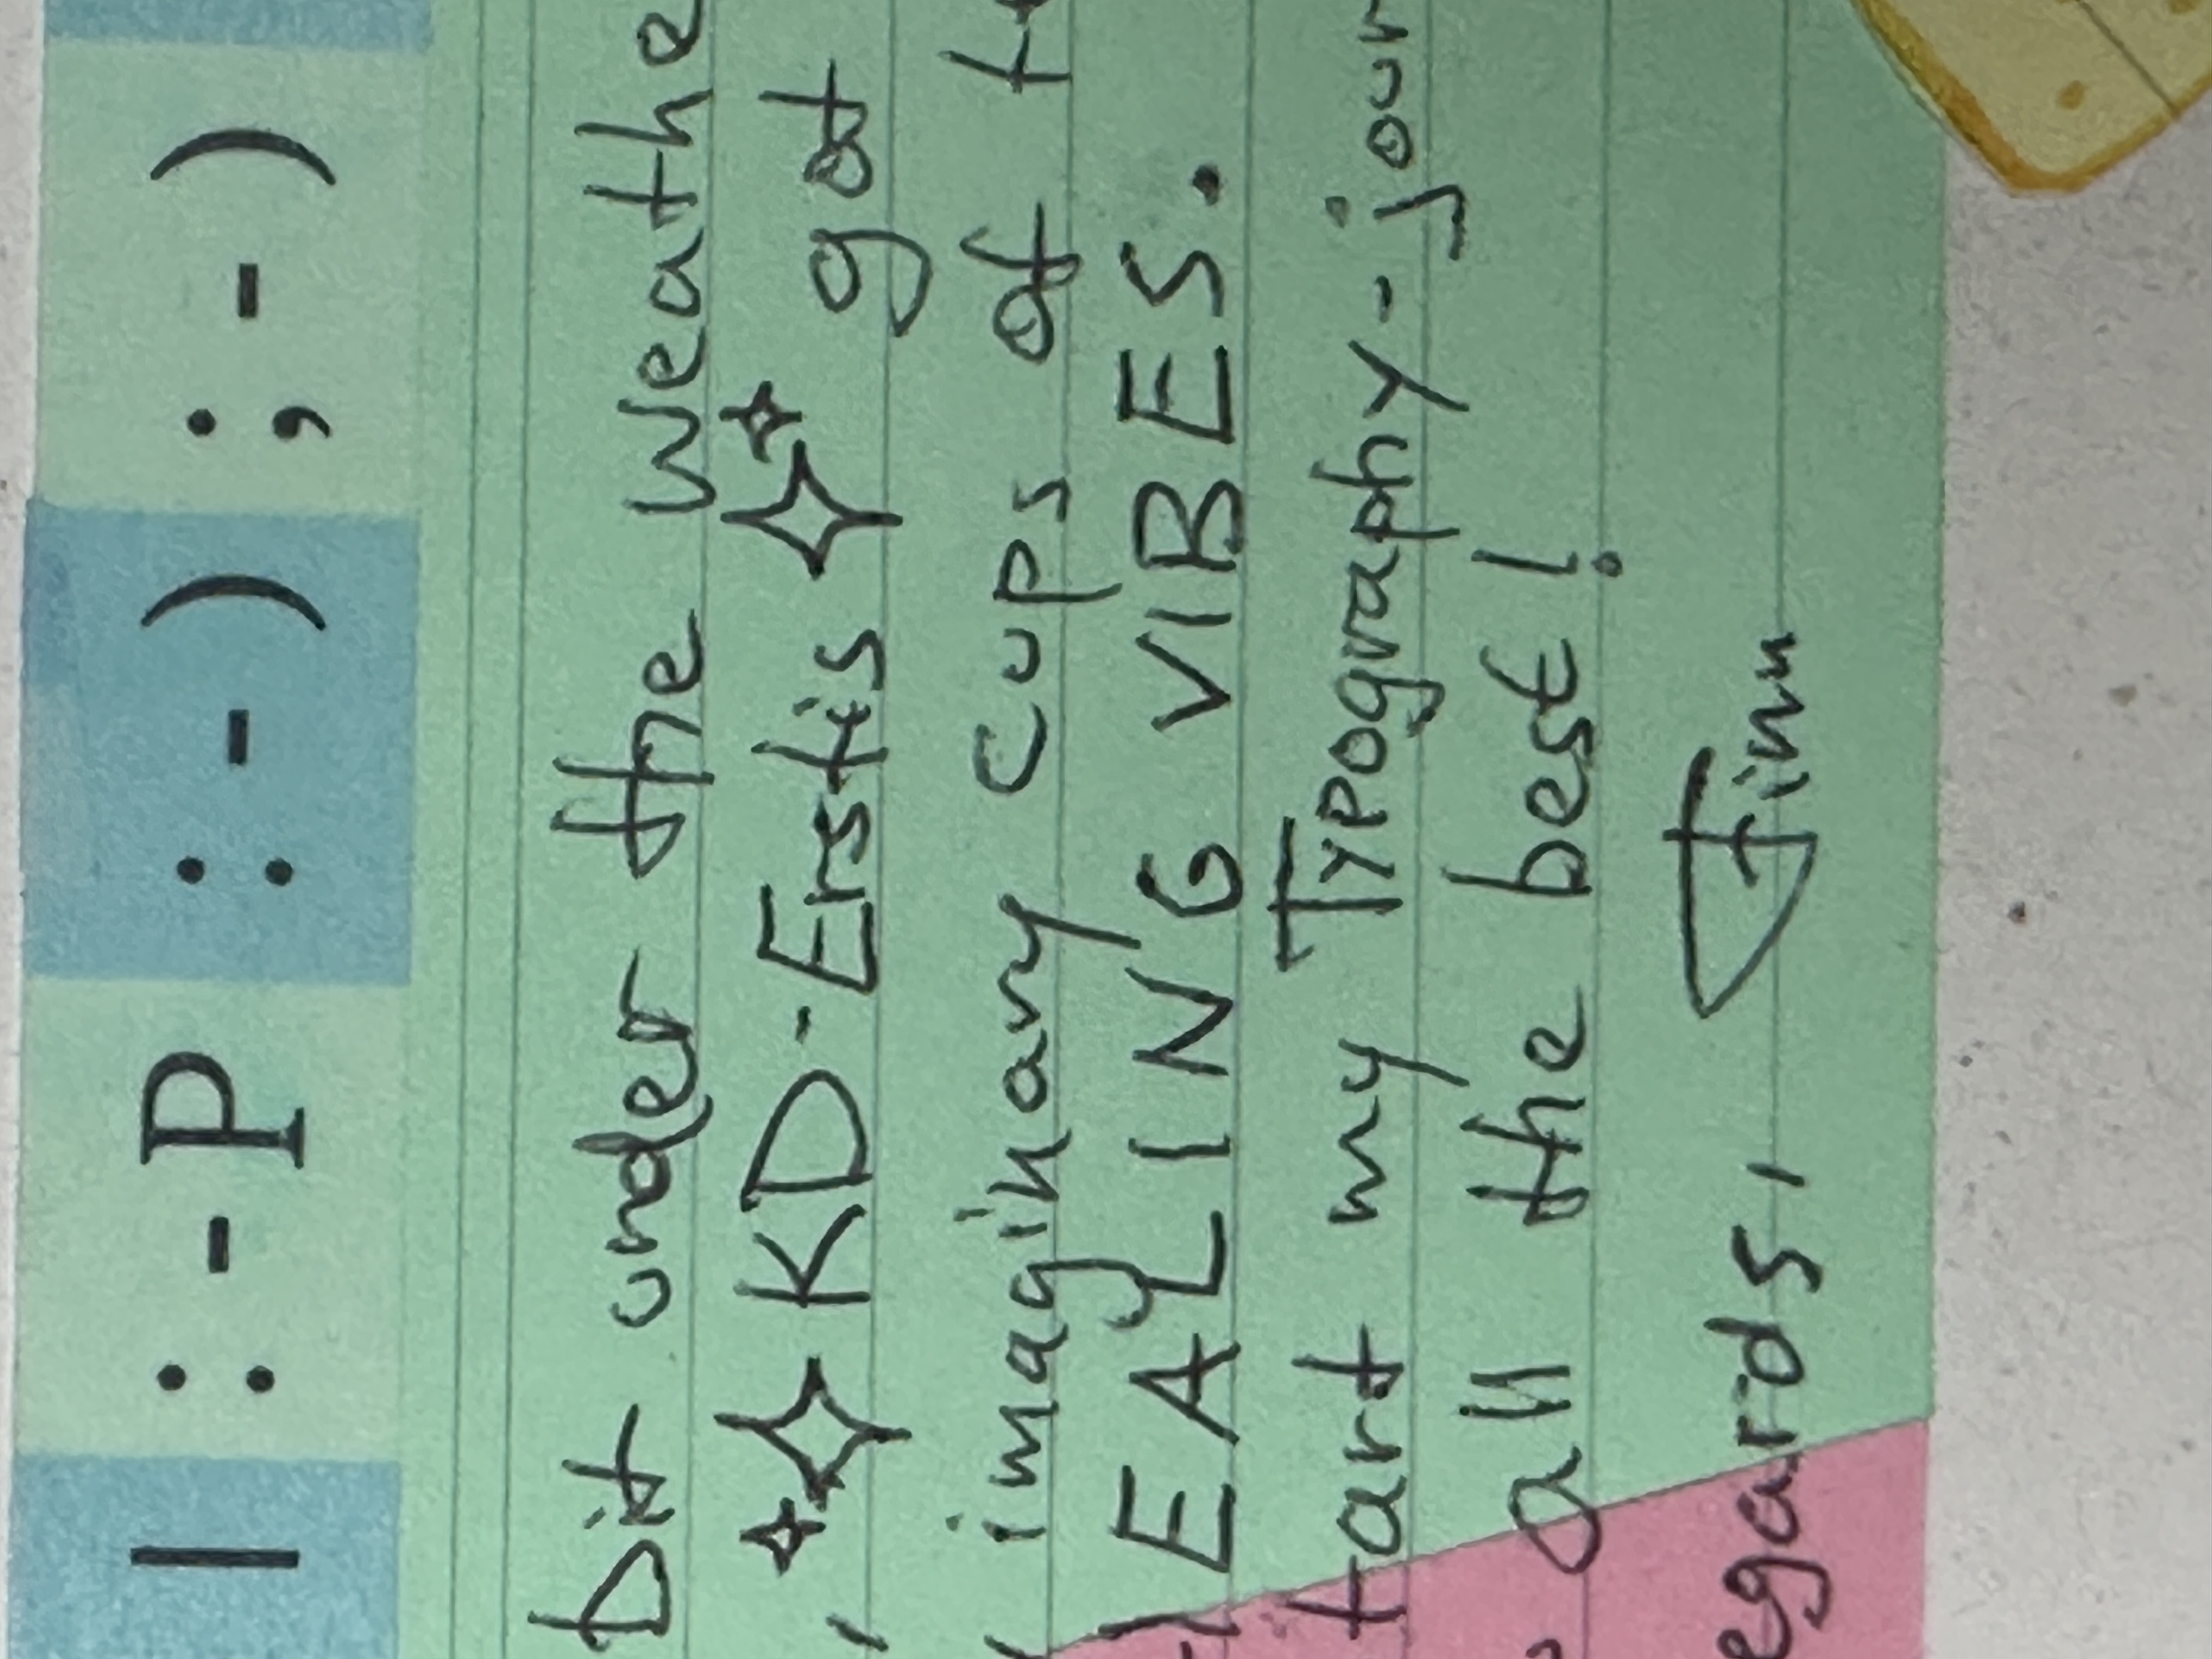 | :-P :-) ;-)
bit under the weathe
, KD-Erstis got
imaginary cups of t
EALING VIBES.
tart my Typography-jour
all the best!
egards, Finn